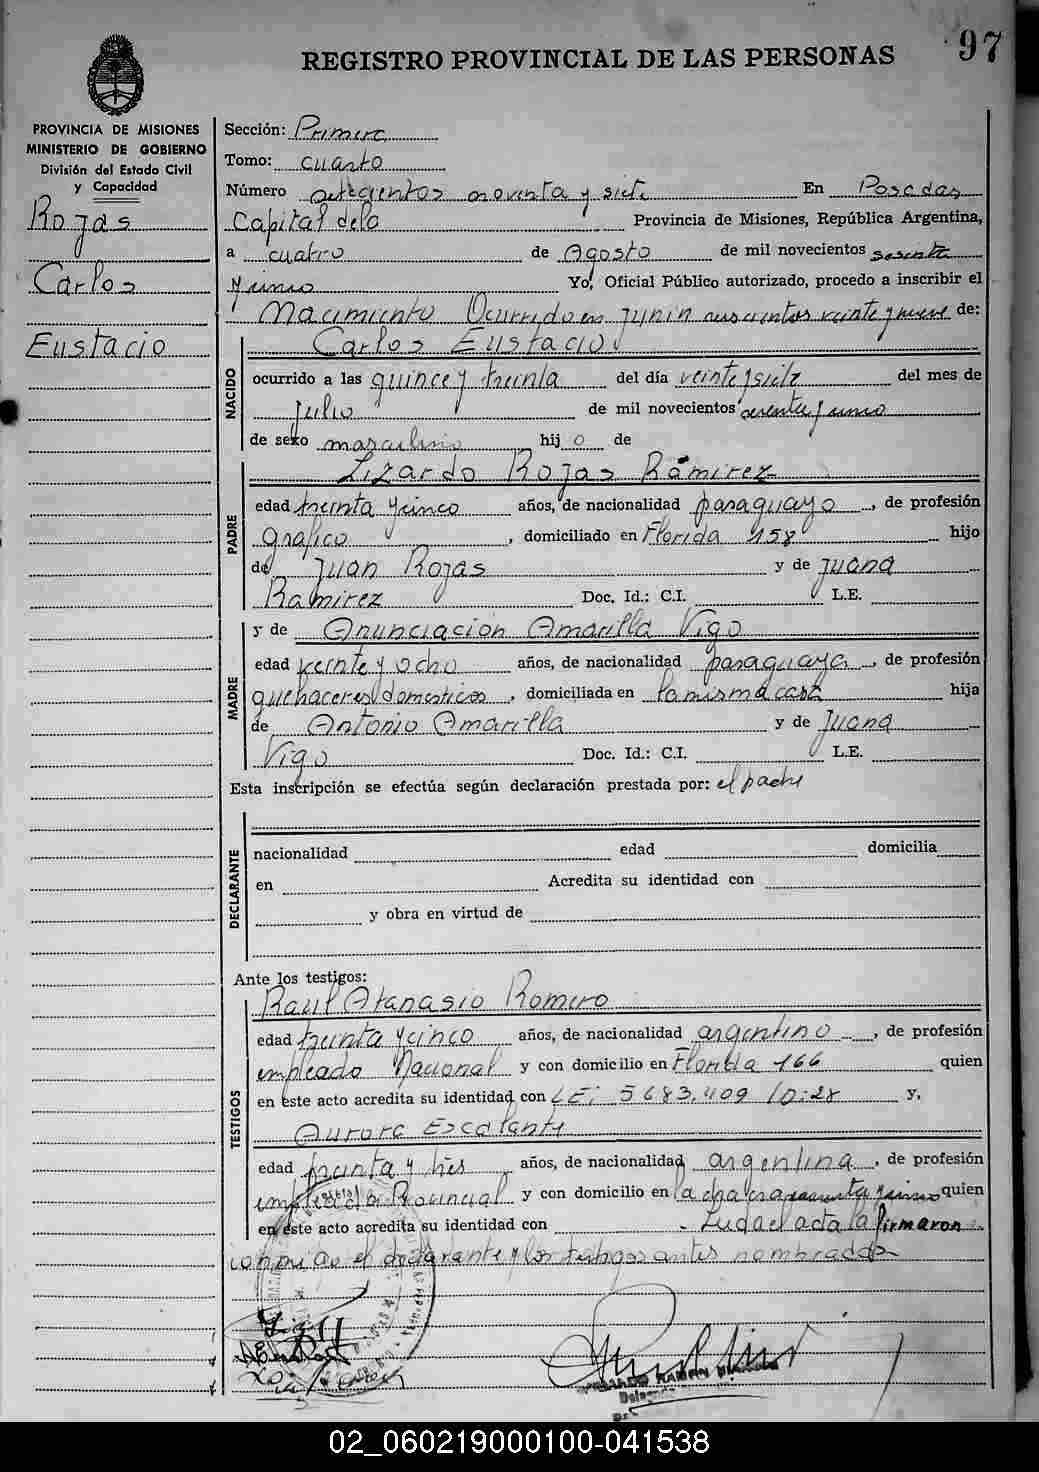 97
REGISTRO PROVINCIAL DE LAS PERSONAS
PROVINCIA DE MISIONES
MINISTERIO DE GOBIERNO
División del Estado Civil
y Capacidad
Rojas
Carlos
Eustacio
Sección: Primera
Tomo: cuarto
Número setecientos noventa y siete En Posadas
Capital de la Provincia de Misiones, República Argentina,
a cuatro de Agosto de mil novecientos sesenta
y uno Yo, Oficial Público autorizado, procedo a inscribir el
Nacimiento Ocurrido en Junin veinte y nueve de:
NACIDO
Carlos Eustacio
ocurrido a las quince y treinta del día veinte y siete del mes de
Julio de mil novecientos sesenta y uno
de sexo masculino hijo de
PADRE
Lizardo Rojas Ramirez
edad treinta y cinco años, de nacionalidad paraguayo, de profesión
grafico, domiciliado en Florida 158 hijo
de Juan Rojas y de Juana
Ramirez Doc. Id.: C.I. L.E.
MADRE
y de Anunciacion Amarilla Vigo
edad veinte y ocho años, de nacionalidad paraguaya, de profesión
quehaceres domesticos, domiciliada en la misma casa hija
de Antonio Amarilla y de Juana
Vigo Doc. Id.: C.I. L.E.
Esta inscripción se efectúa según declaración prestada por: el padre
DECLARANTE
nacionalidad edad domicilia
en Acredita su identidad con
y obra en virtud de
Ante los testigos:
TESTIGOS
Raul Atanasio Romero
edad treinta y cinco años, de nacionalidad argentino, de profesión
empleado Nacional y con domicilio en Florida 166 quien
en este acto acredita su identidad con LE: 5683.409 D:28 y,
Aurora Escalante
edad treinta y tres años, de nacionalidad argentina, de profesión
empleada Provincial y con domicilio en la chacra y uno quien
en este acto acredita su identidad con - Leida el acta la firmaron
conmigo el declarante y los testigos antes nombrados
02_060219000100-041538